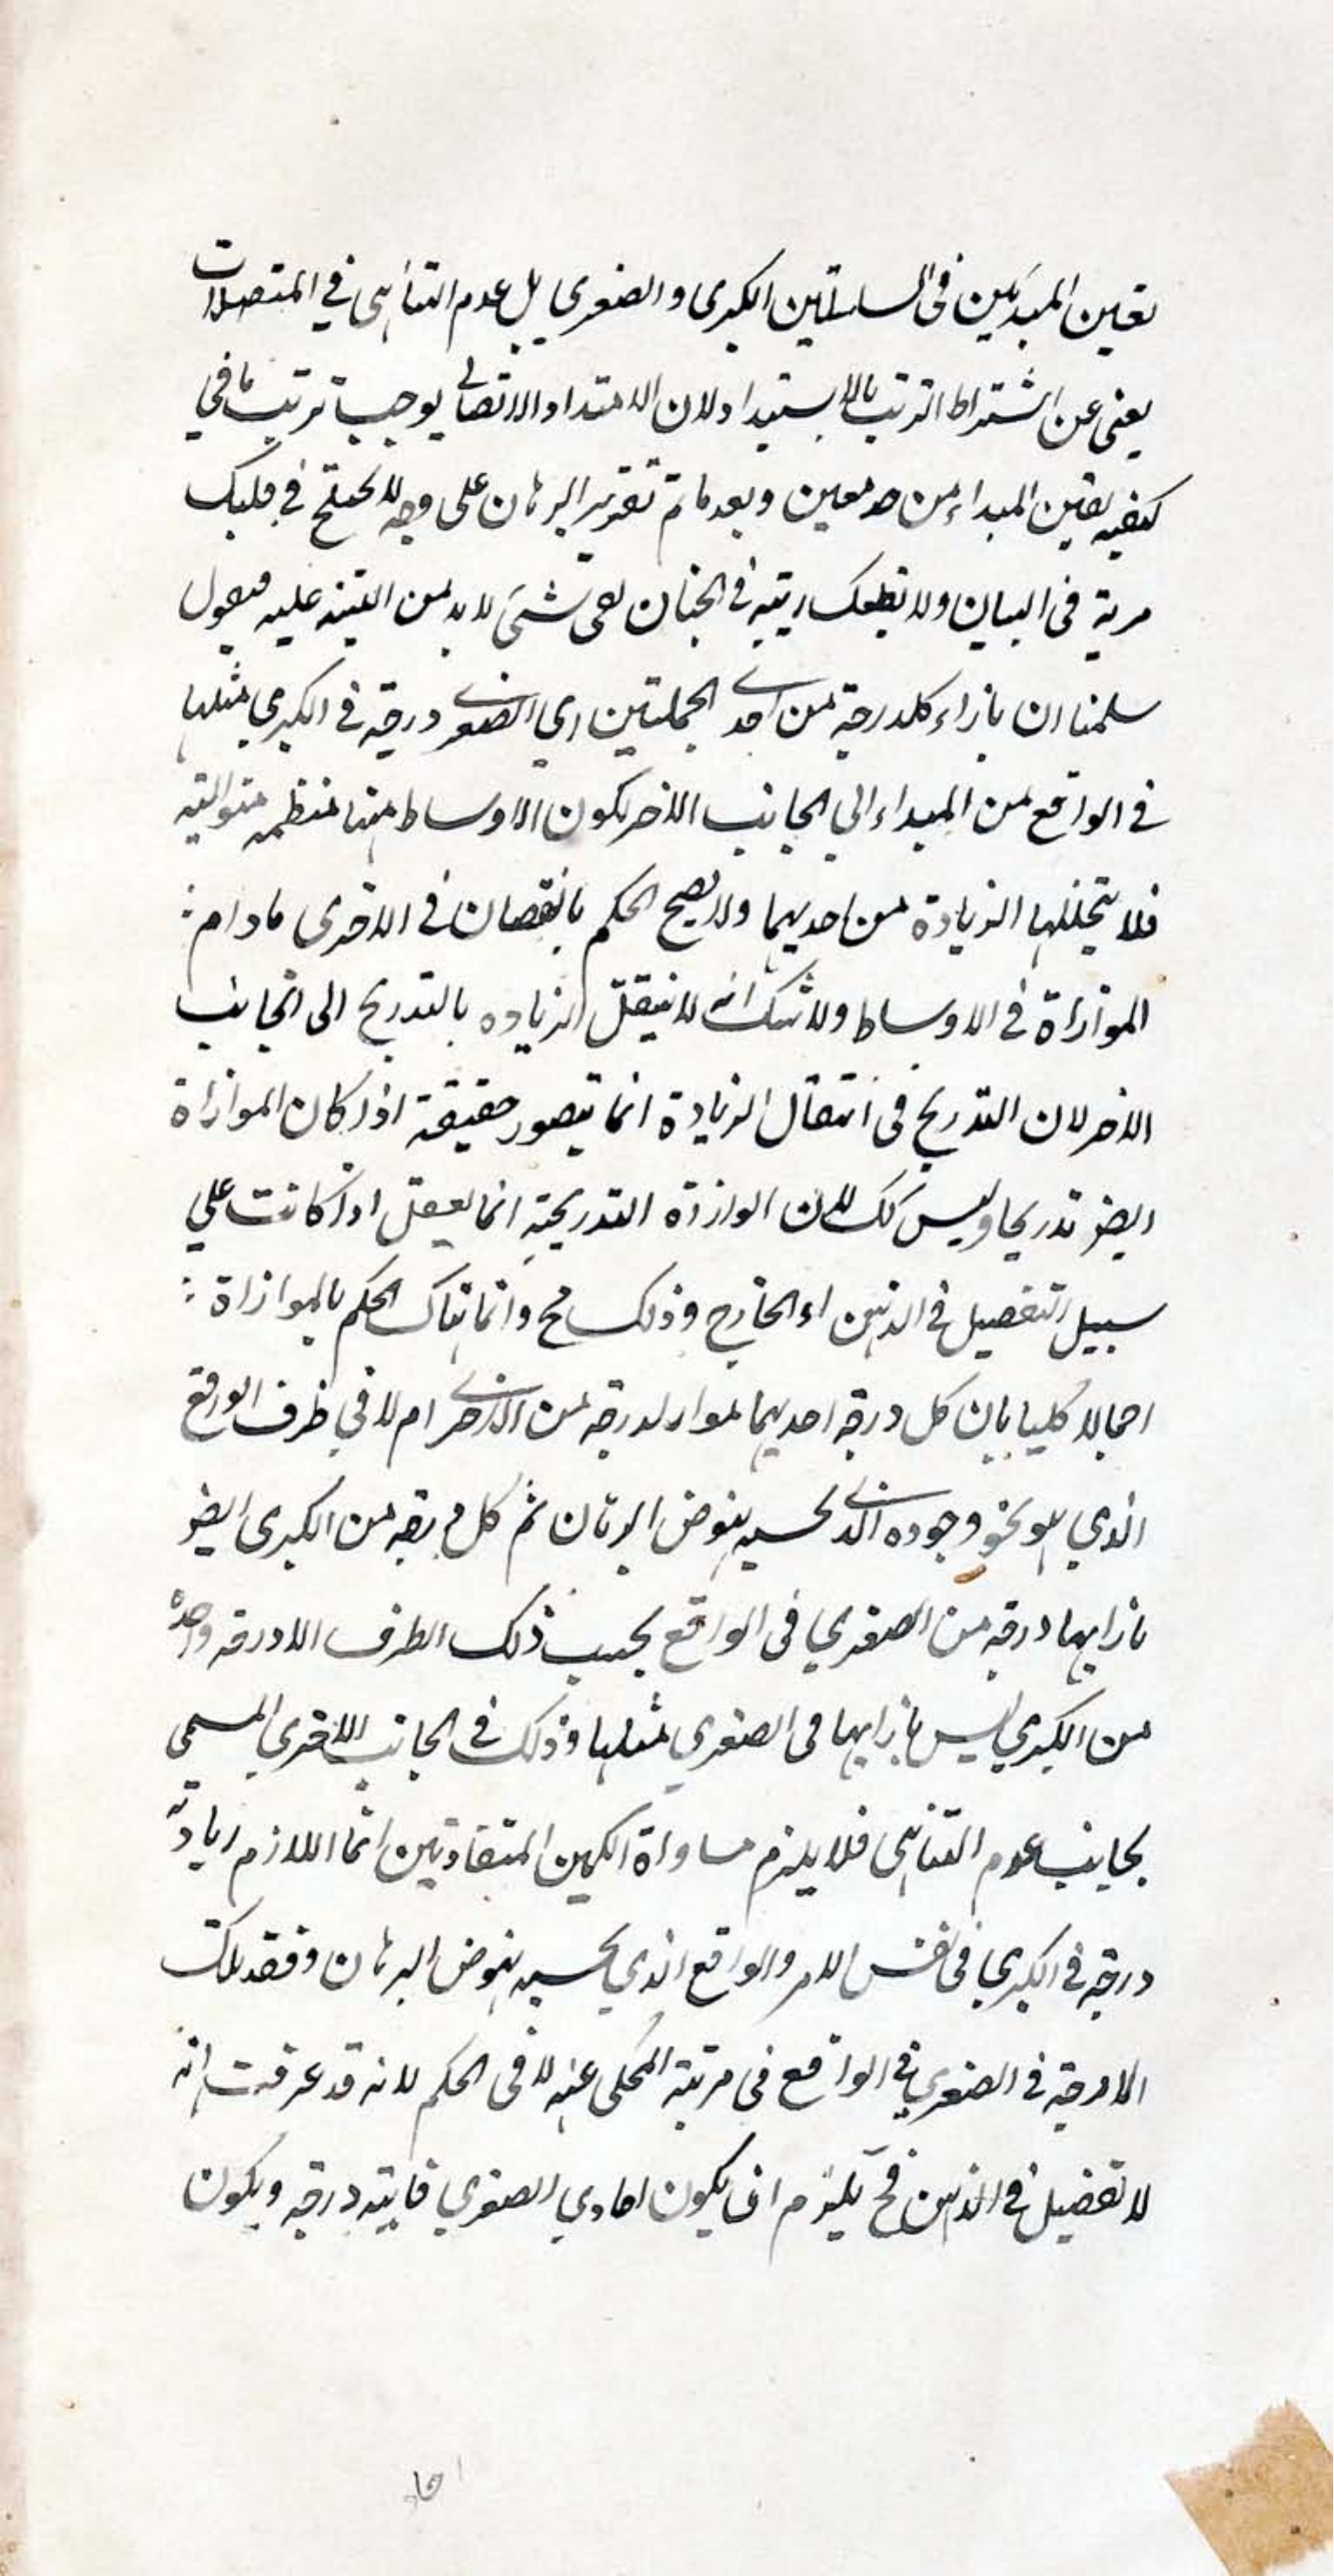 تعين المبدئين فى السلسلتين الكبرى والصغرى بل عدم التناهى في المتصلات
يغنى عن اشتراط الترتيب بالاستبداد لان الامتداد الاتصالي يوجب ترتيبا ما في
كيفيه تعين المبداء من حد معين وبعد ما تم تقرير البرهان على وجه لا يختلج في قلبك
مرية فى البيان ولا ريبة في الجنان بقى شئ لا بد من التنبيه عليه فيقول
سلمنا ان بازاء كل درجة من احدى الجملتين اي الصغرى درجة في الكبري مثلها
في الواقع من المبداء الي الجانب الاخر لكون الاوساط منها منتظمه متواليه
فلا يتخللها الزيادة من احديهما ولا يصح الحكم بالنقصان في الاخرى مادام :
الموازاة في الاوساط ولا شك انه لا ينتقل الزياده بالتدريج الى الجانب
الاخر لان التدريج فى انتقال الزيادة انما يتصور حقيقة اذا كان الموازاة
ايضو تدريجا وليس كك لان الوازاة التدريجية انما يعقل اذا كانت علي
سبيل التفصيل في الذهن او الخارج وذلك مح وانما هناك الحكم بالموازاة :
اجمالا كليا بان كل درجة احديهما مواز لدرجة من الاخرى ام لا في ظرف الواقع
الذي هو نحو وجوده الذى بحسبه ينوض البرهان ثم كل مرتبه من الكبرى ايضو
بازايها درجه من الصغري فى الواقع بحسب ذلك الطرف الا درجه واحدة
من الكبري ليس بازايها فى الصغري مثلها وذلك في الجانب الاخرى المسمى
بجانب عدم التناهى فلا يلزم مساواة الكمين المتفاوتين انما اللازم زيادته
درجة في الكبري فى نفس الامر والواقع الذي بحسبه ينوض البرهان وفقد تلك
الدرجة في الصغري في الواقع فى مرتبة المحكى عنه لا فى الحكم لانه قد عرفت انه
لا تفضيل في الذهن فح يلزم ان يكون احادي الصغري فايته درجه ويكون
احاد